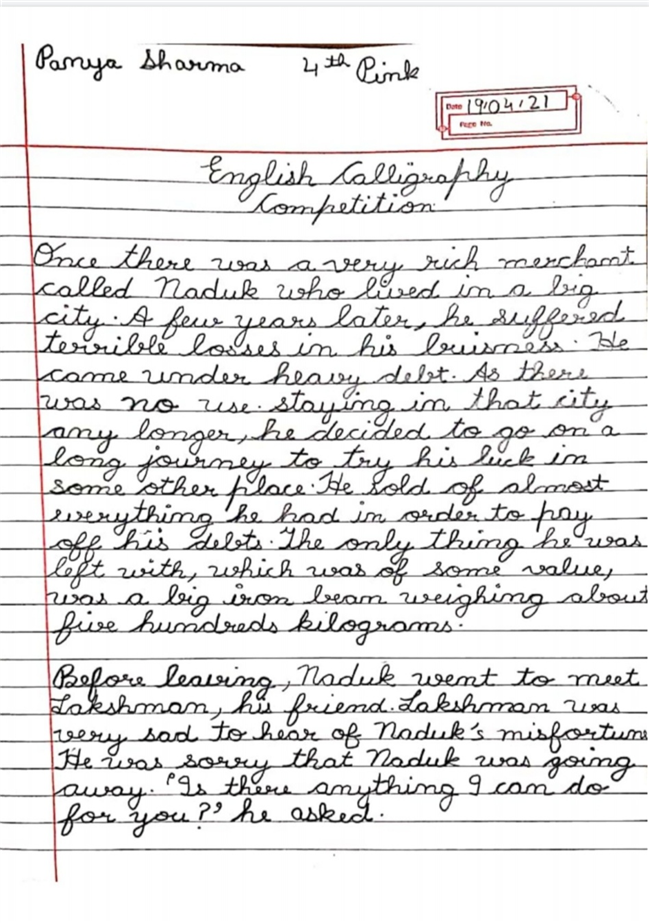 Panya Sharma 4th Pink
Date 19.04.21
Page No.
English Calligraphy
Competition
Once there was a very rich merchant
called Naduk who lived in a big
city. A few years later, he suffered
terrible losses in his buisness. He
came under heavy debt. As there
was no use staying in that city
any longer, he decided to go on a
long journey to try his luck in
some other place. He sold of almost
everything he had in order to pay
off his debts. The only thing he was
left with, which was of some value,
was a big iron beam weighing about
five hundreds kilograms.
Before leaving, Naduk went to meet
Lakshman, his friend. Lakshman was
very sad to hear of Naduk's misfortune
He was sorry that Naduk was going
away. "Is there anything I can do
for you?" he asked.